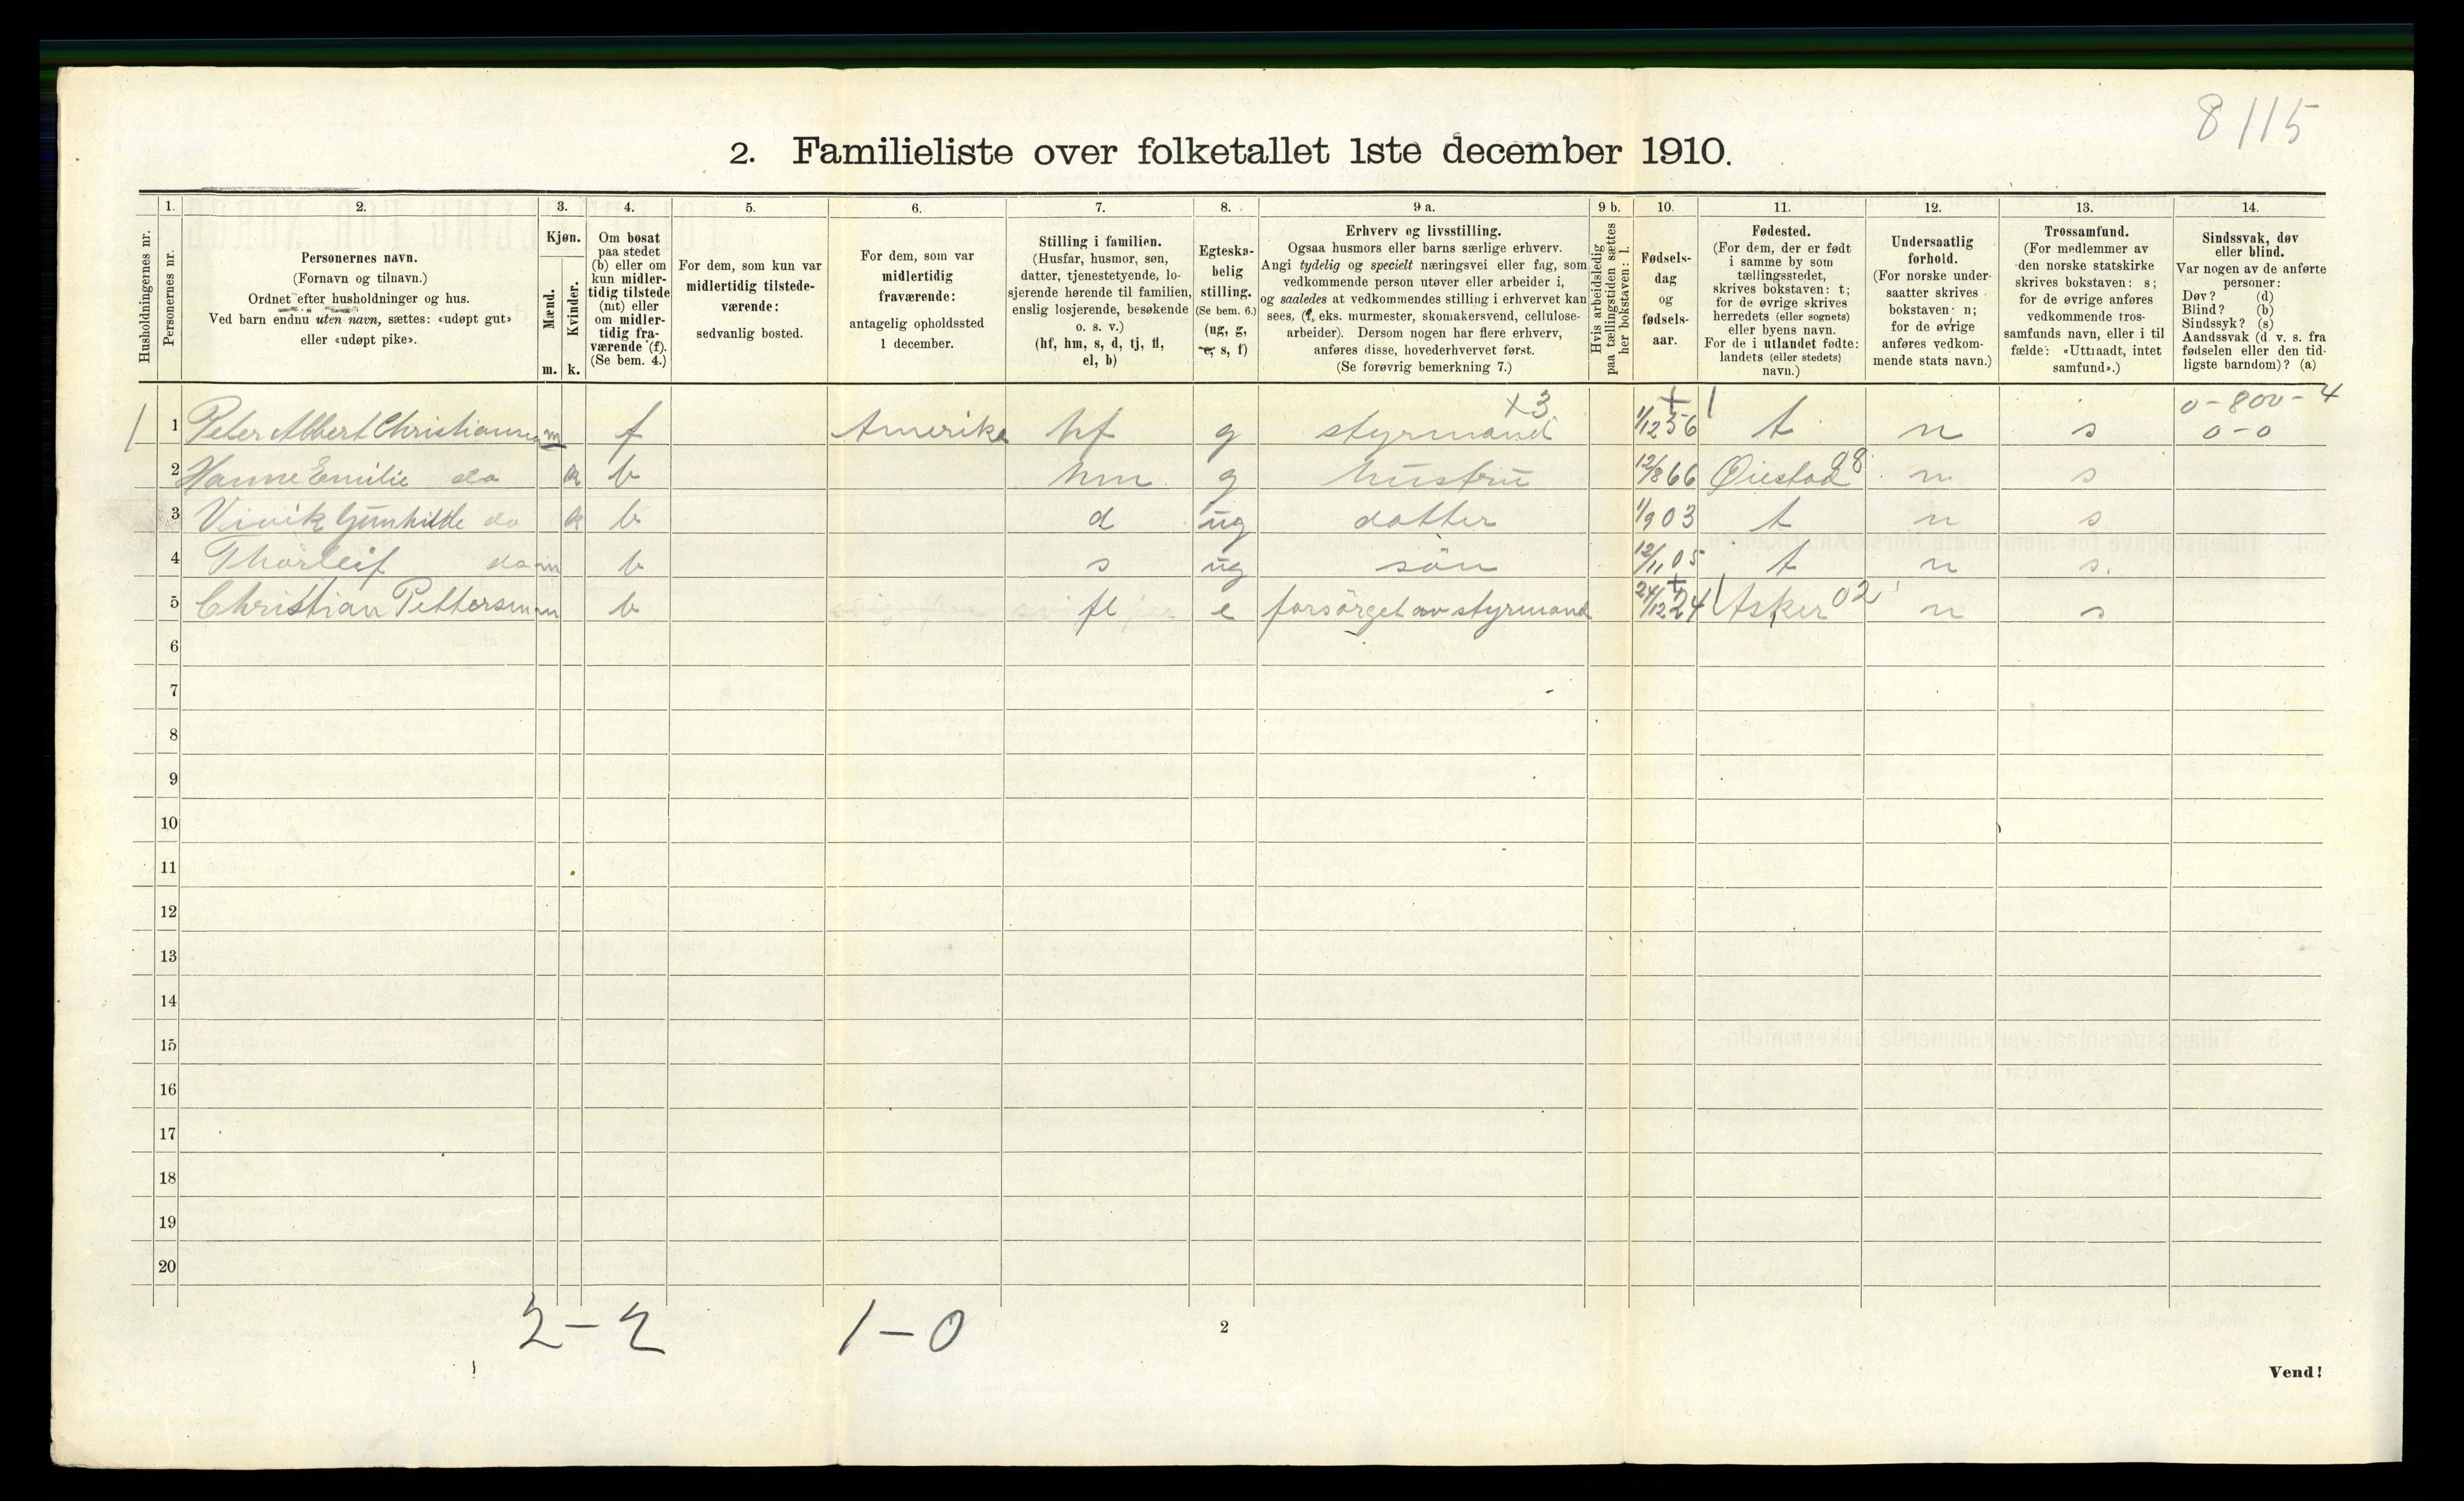 8/115
2. Familieliste over folketallet 1ste december 1910.
Husholdningernes nr.
1.
Personernes nr.
2.
Personernes navn.
(Fornavn og tilnavn.)
Ordnet efter husholdninger og hus.
Ved barn endnu uten navn, sættes: «udøpt gut»
eller «udøpt pike».
3.
Kjøn.
Mænd.
Kvinder.
m. k.
4.
Om bosat
paa stedet
(b) eller om
kun midler-
tidig tilstede
(mt) eller
om midler-
tidig fra-
værende (f).
(Se bem. 4.)
5.
For dem, som kun var
midlertidig tilstede-
værende:
sedvanlig bosted.
6.
For dem, som var
midlertidig
fraværende:
antagelig opholdssted
1 december.
7.
Stilling i familien.
(Husfar, husmor, søn,
datter, tjenestetyende, lo-
sjerende hørende til familien,
enslig losjerende, besøkende
o. s. v.)
(hf, hm, s, d, tj, fl,
el, b)
8.
Egteska-
belig
stilling.
(Se bem. 6.)
(ug, g,
e, s, f)
9 a.
Erhverv og livsstilling.
Ogsaa husmors eller barns særlige erhverv.
Angi tydelig og specielt næringsvei eller fag, som
vedkommende person utøver eller arbeider i,
og saaledes at vedkommendes stilling i erhvervet kan
sees, (f. eks. murmester, skomakersvend, cellulose-
arbeider). Dersom nogen har flere erhverv,
anføres disse, hovederhvervet først.
(Se forøvrig bemerkning 7.)
9 b.
Hvis arbeidsledig
paa tællingstiden sættes
her bokstaven: l.
10.
Fødsels-
dag
og
fødsels-
aar.
11.
Fødested.
(For dem, der er født
i samme by som
tællingsstedet,
skrives bokstaven: t;
for de øvrige skrives
herredets (eller sognets)
eller byens navn.
For de i utlandet fødte:
landets (eller stedets)
navn.)
12.
Undersaatlig
forhold.
(For norske under-
saatter skrives
bokstaven: n;
for de øvrige
anføres vedkom-
mende stats navn.)
13.
Trossamfund.
(For medlemmer av
den norske statskirke
skrives bokstaven: s;
for de øvrige anføres
vedkommende tros-
samfunds navn, eller i til
fælde: «Uttraadt, intet
samfund».)
14.
Sindssvak, døv
eller blind.
Var nogen av de anførte
personer:
Døv? (d)
Blind? (b)
Sindssyk? (s)
Aandssvak (d. v. s. fra
fødselen eller den tid-
ligste barndom)? (a)
1 1 Peter Albert Christiansen m f Amerika hf g styrmand x3 1/12 56 t n s 0-800-4
0-0
2 Hanne Emilie do k b hm g hustru 12/8 66 Øiestad 98 n s
3 Vivik Gunhilde do k b d ug datter 1/9 03 t n s
4 Thorleif do m b s ug søn 12/11 05 t n s.
5 Christian Pettersen m b fl e forsørget av styrmand 24/12 24 Asker 02 n s
6
7
8
9
10
11
12
13
14
15
16
17
18
19
20
2-2 1-0
2
Vend!